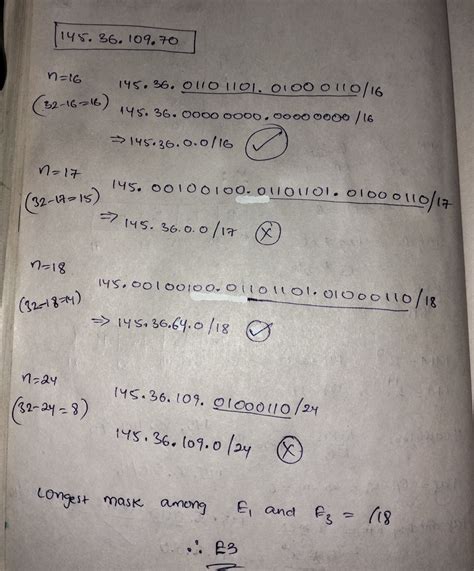 145.36.109.70
n=16
(32-16=16)
145.36.01101101.01000110/16
145.36.00000000.00000000/16
⇒145.36.0.0/16 ✓
n=17
(32-17=15)
145.00100100.01101101.01000110/17
⇒ 145.36.0.0/17 ×
n=18
(32-18=14)
145.00100100.01101101.01000110/18
⇒ 145.36.64.0/18 ✓
n=24
(32-24=8)
145.36.109.01000110/24
145.36.109.0/24 ×
longest mask among E1 and E3 = /18
∴ E3